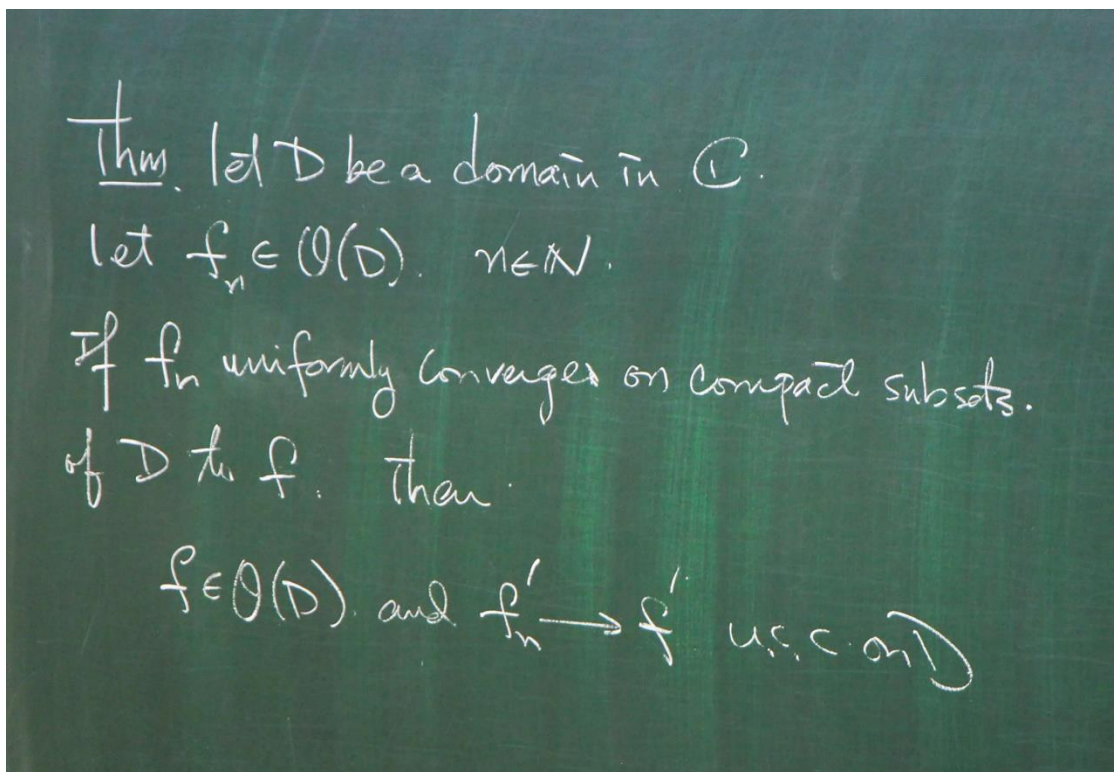 Thm. let D be a domain in ℂ.
let fₙ ∈ 𝒪(D). n∈ℕ.
If fₙ uniformly converges on compact subsets.
of D to f. Then.
f∈𝒪(D). and fₙ' → f' u.c.c. on D